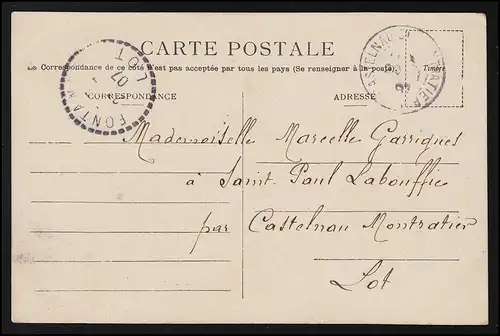 CARTE POSTALE
La Correspondance de ce côté n'est pas acceptée par tous les pays (Se renseigner à la poste).
Timbre
CORRESPONDANCE
ADRESSE
LOT
07
Mademoiselle Marcelle Garrigues
à Saint Paul Labouffie
par Castelnau Montratier
Lot